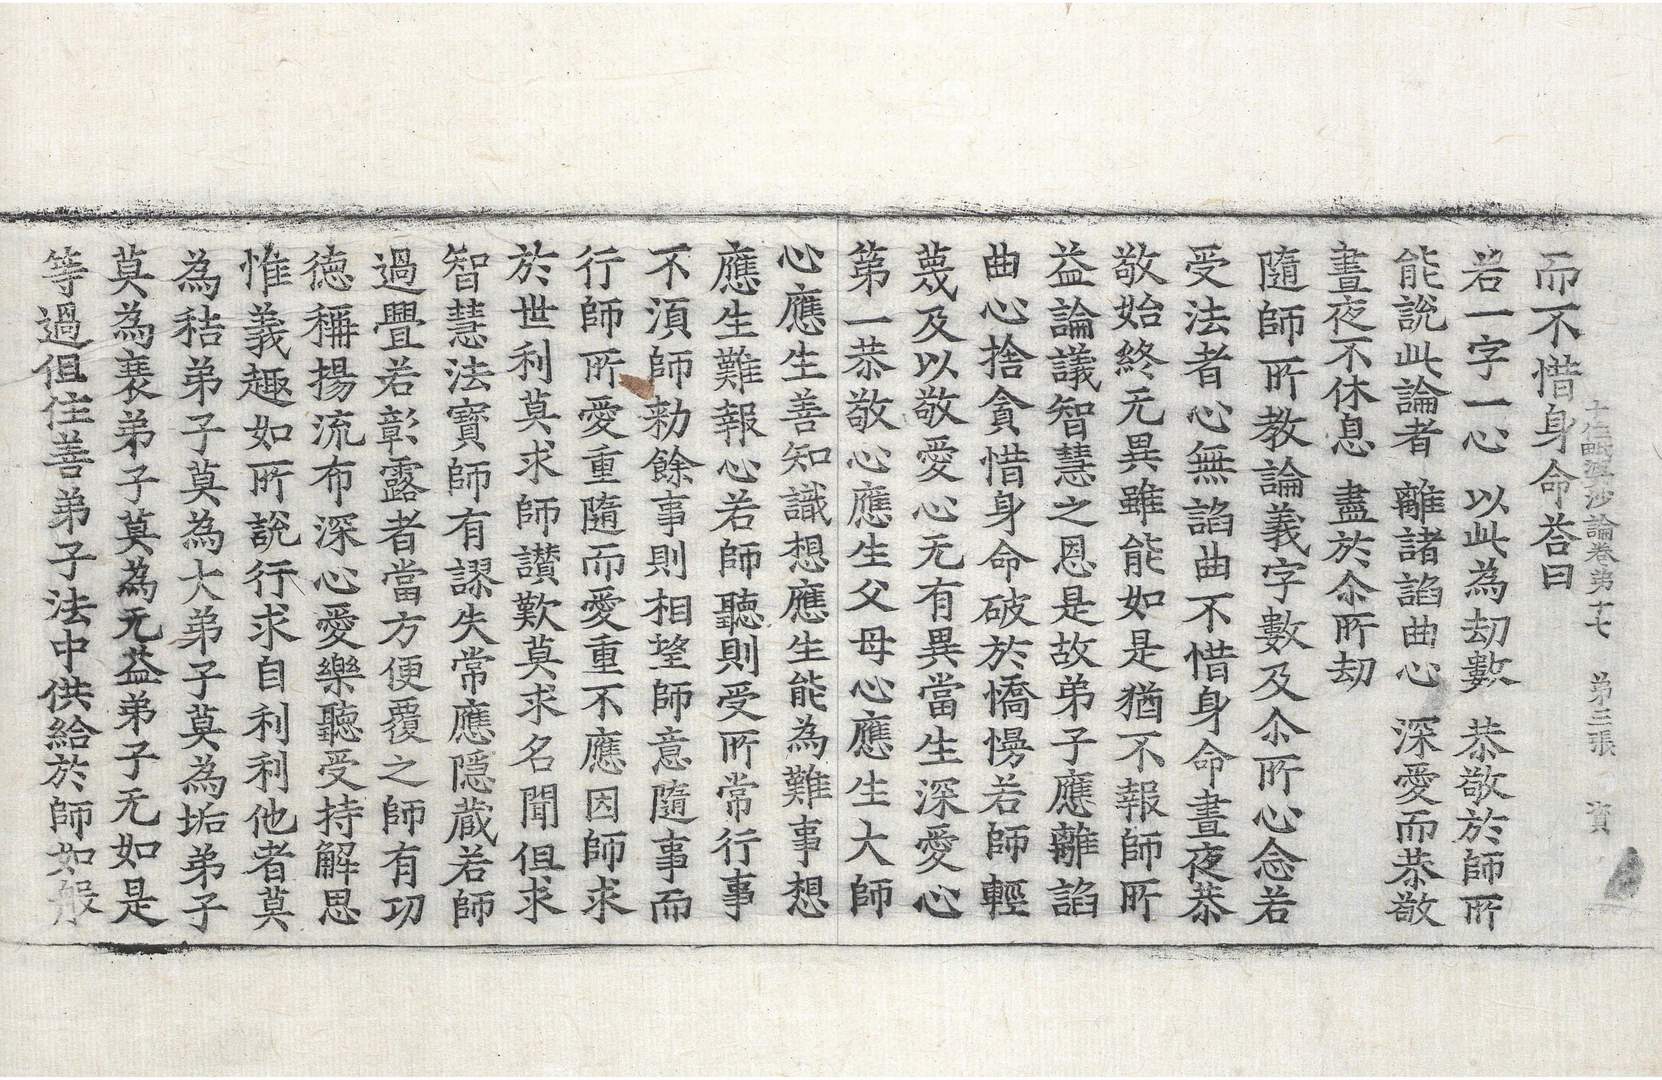 十住毗婆沙論卷第十七 第三張 資
而不惜身命荅曰
若一字一心 以此為劫數 恭敬於師所
能說此論者 離諸諂曲心 深愛而恭敬
晝夜不休息 盡於尒所劫
隨師所教論義字數及尒所心念若
受法者心無諂曲不惜身命晝夜恭
敬始終无異雖能如是猶不報師所
益論議智慧之恩是故弟子應離諂
曲心捨貪惜身命破於憍慢若師輕
蔑及以敬愛心无有異當生深愛心
第一恭敬心應生父母心應生大師
心應生善知識想應生能為難事想
應生難報心若師聽則受所常行事
不須師勑餘事則相望師意隨事而
行師所愛重隨而愛重不應因師求
於世利莫求師讃歎莫求名聞但求
智慧法寶師有謬失常應隱蔵若師
過舋若彰露者當方便覆之師有功
德稱揚流布深心愛樂聽受持解思
惟義趣如所說行求自利利他者莫
為秸弟子莫為大弟子莫為垢弟子
莫為衰弟子莫為无益弟子无如是
等過但住善弟子法中供給於師如般